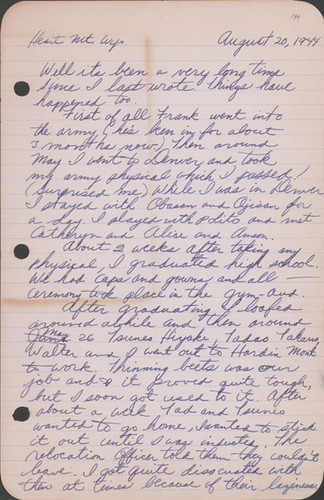 Heart Mt. Wyo. August 20, 1944
Well its been a very long time
since I last wrote. Things have
happened too.
First of all Frank went into
the army, (he's been in for about
3 months now.) Then around
May I went to Denver and took
my army physical which I passed!
(Surprised me) While I was in Denver
I stayed with Obasan and Ojisan for
a day. I played with and met
Catheryn and Alice and Anson.
About 2 weeks after taking my
physical, I graduated high school.
We had caps and gowns and all —
ceremony took place in the gym-aud.
After graduating I loafed
around awhile and then around
May 26 Tsuneo Hiyake, Tadao Takano,
Walter and I went out to Hardin Mont
to work. Thinning beets was our
job and it proved quite tough,
but I soon got used to it. After
about a week Tad and Tsuneo
wanted to go home, I wanted to stick
it out until I was inducted. The
relocation officer told them they couldn't
leave. I got quite with
them at times because of their laziness